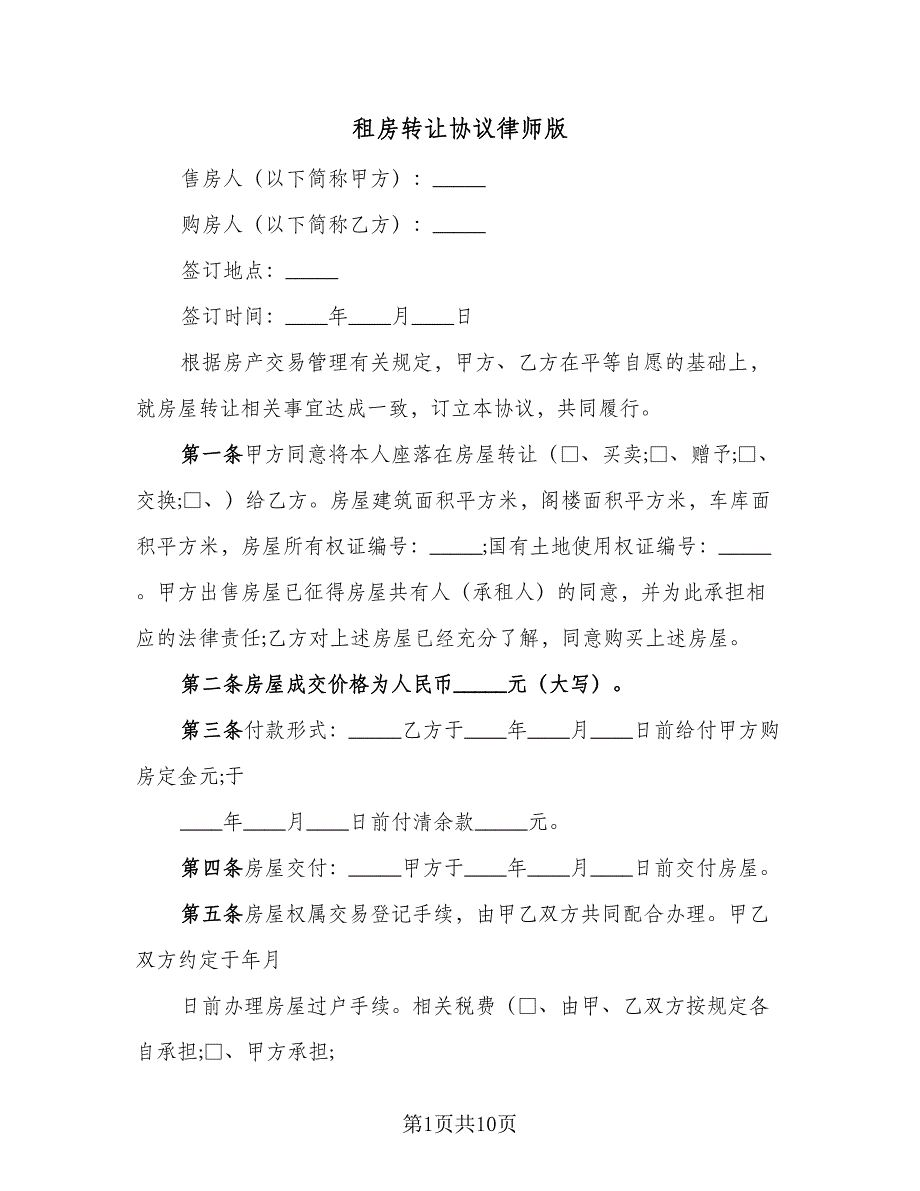 租房转让协议律师版
售房人（以下简称甲方）：_____
购房人（以下简称乙方）：_____
签订地点：_____
签订时间：____年____月____日
根据房产交易管理有关规定，甲方、乙方在平等自愿的基础上，
就房屋转让相关事宜达成一致，订立本协议，共同履行。
第一条甲方同意将本人座落在房屋转让（□、买卖;□、赠予;□、
交换;□、）给乙方。房屋建筑面积平方米，阁楼面积平方米，车库面
积平方米，房屋所有权证编号：_____;国有土地使用权证编号：_____
。甲方出售房屋已征得房屋共有人（承租人）的同意，并为此承担相
应的法律责任;乙方对上述房屋已经充分了解，同意购买上述房屋。
第二条房屋成交价格为人民币_____元（大写）。
第三条付款形式：_____乙方于____年____月____日前给付甲方购
房定金元;于
____年____月____日前付清余款_____元。
第四条房屋交付：_____甲方于____年____月____日前交付房屋。
第五条房屋权属交易登记手续，由甲乙双方共同配合办理。甲乙
双方约定于年月
日前办理房屋过户手续。相关税费（□、由甲、乙双方按规定各
自承担;□、甲方承担;
第1页共10页